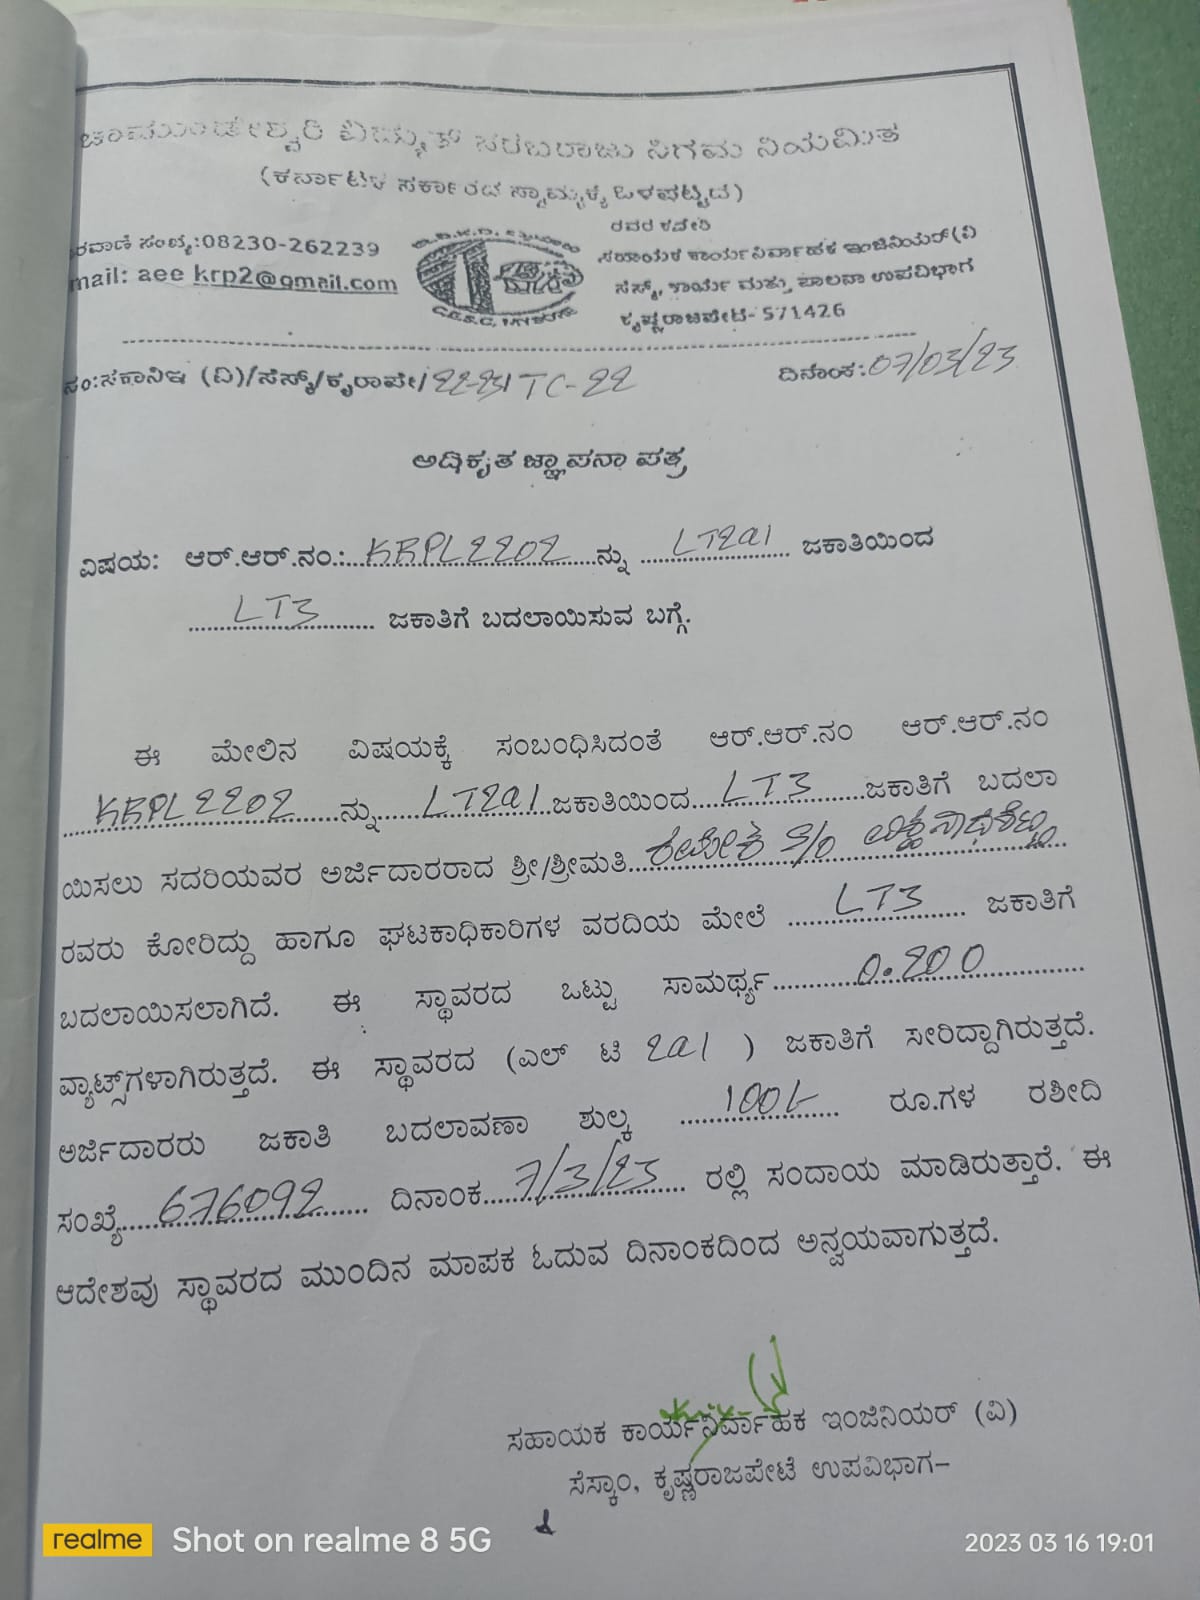 ಚಾಮುಂಡೇಶ್ವರಿ ವಿದ್ಯುತ್ ಸರಬರಾಜು ನಿಗಮ ನಿಯಮಿತ
(ಕರ್ನಾಟಕ ಸರ್ಕಾರದ ಸ್ವಾಮ್ಯಕ್ಕೆ ಒಳಪಟ್ಟಿದೆ)
ರವಾಣಿ ಸಂಖ್ಯೆ:08230-262239
mail: aee krp2@gmail.com
ರವರ ಕಛೇರಿ
ಸಹಾಯಕ ಕಾರ್ಯನಿರ್ವಾಹಕ ಇಂಜಿನಿಯರ್(ವಿ
ಸೆಸ್ಕ್, ಕಾರ್ಯ ಮತ್ತು ಪಾಲನಾ ಉಪವಿಭಾಗ
ಕೃಷ್ಣರಾಜಪೇಟೆ- 571426
ಸಂ:ಸಕಾನಿಇ (ವಿ)/ಸೆಸ್ಕ್/ಕೃರಾಪೇ/22-23/TC-22 ದಿನಾಂಕ:07/03/23
ಅಧಿಕೃತ ಜ್ಞಾಪನಾ ಪತ್ರ
ವಿಷಯ: ಆರ್.ಆರ್.ನಂ.:KRPL2202 ನ್ನು LT2a1 ಜಕಾತಿಯಿಂದ
LT3 ಜಕಾತಿಗೆ ಬದಲಾಯಿಸುವ ಬಗ್ಗೆ.
ಈ ಮೇಲಿನ ವಿಷಯಕ್ಕೆ ಸಂಬಂಧಿಸಿದಂತೆ ಆರ್.ಆರ್.ನಂ ಆರ್.ಆರ್.ನಂ
KRPL2202 ನ್ನು LT2a1 ಜಕಾತಿಯಿಂದ LT3 ಜಕಾತಿಗೆ ಬದಲಾ
ಯಿಸಲು ಸದರಿಯವರ ಅರ್ಜಿದಾರರಾದ ಶ್ರೀ/ಶ್ರೀಮತಿ S/o
ರವರು ಕೋರಿದ್ದು ಹಾಗೂ ಘಟಕಾಧಿಕಾರಿಗಳ ವರದಿಯ ಮೇಲೆ LT3 ಜಕಾತಿಗೆ
ಬದಲಾಯಿಸಲಾಗಿದೆ. ಈ ಸ್ಥಾವರದ ಒಟ್ಟು ಸಾಮರ್ಥ್ಯ 0.200
ವ್ಯಾಟ್ಸ್‌ಗಳಾಗಿರುತ್ತದೆ. ಈ ಸ್ಥಾವರದ (ಎಲ್ ಟಿ 2a1 ) ಜಕಾತಿಗೆ ಸೇರಿದ್ದಾಗಿರುತ್ತದೆ.
ಅರ್ಜಿದಾರರು ಜಕಾತಿ ಬದಲಾವಣಾ ಶುಲ್ಕ 100/- ರೂ.ಗಳ ರಶೀದಿ
ಸಂಖ್ಯೆ 676092 ದಿನಾಂಕ 7/3/23 ರಲ್ಲಿ ಸಂದಾಯ ಮಾಡಿರುತ್ತಾರೆ. ಈ
ಆದೇಶವು ಸ್ಥಾವರದ ಮುಂದಿನ ಮಾಪಕ ಓದುವ ದಿನಾಂಕದಿಂದ ಅನ್ವಯವಾಗುತ್ತದೆ.
ಸಹಾಯಕ ಕಾರ್ಯನಿರ್ವಾಹಕ ಇಂಜಿನಿಯರ್ (ವಿ)
ಸೆಸ್ಕಾಂ, ಕೃಷ್ಣರಾಜಪೇಟೆ ಉಪವಿಭಾಗ-
realme Shot on realme 8 5G 2023 03 16 19:01